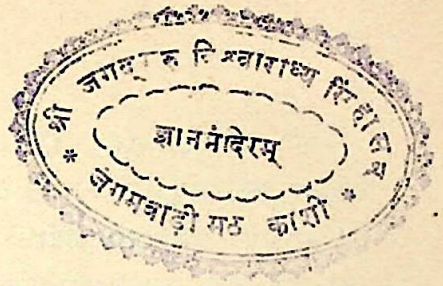 श्री जगद्गुरु विश्वाराध्य सिंहासन
ज्ञानमंदिरम्
* जंगमवाड़ी मठ काशी *